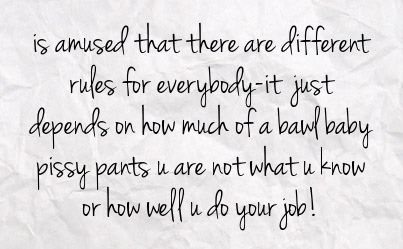 is amused that there are different
rules for everybody-it just
depends on how much of a bawl baby
pissy pants u are not what u know
or how well u do your job!